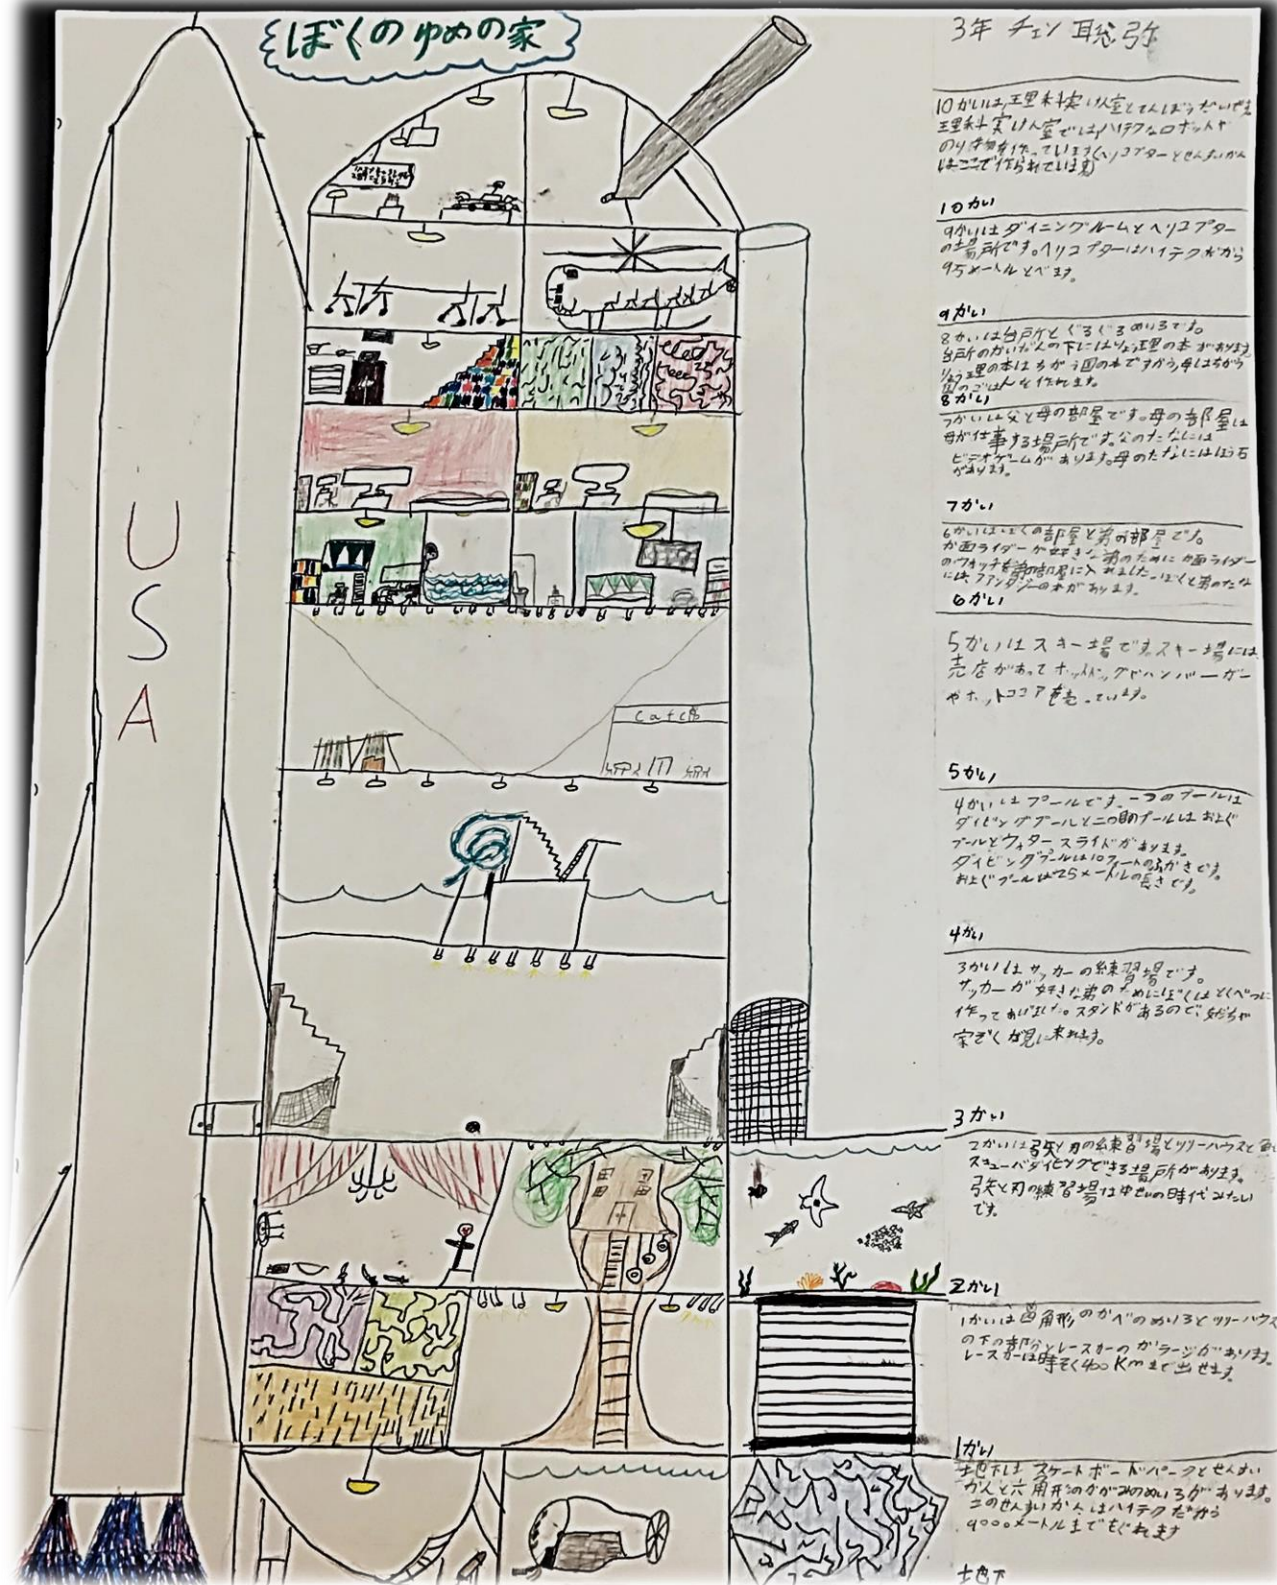 ぼくのゆめの家
3年 チェン 聡弥
10かいは、理科実けん室とてんぼうだいです
理科実けん室では、ハイテクなロボットや
のり物を作っています(ヘリコプターとせんすいかん
はここで作られています)
10かい
9かいはダイニングルームとヘリコプター
の場所です。ヘリコプターはハイテクだから
9万メートルとべます。
9かい
8かいは台所とぐるぐるめいろです。
台所のかいだんの下にはりょう理の本があります
りょう理の本はちがう国の本ですから、母はちがう
国のごはんを作れます。
8かい
7かいは父と母の部屋です。母の部屋は
母が仕事する場所です。父のたなには
ビデオゲームがあります。母のたなにはほう石
があります。
7かい
6かいはぼくの部屋と弟の部屋です。
か面ライダーが好きな弟のためにか面ライダー
のウォッチを弟の部屋に入れました。ぼくと弟のたな
には、ファンタジーの本があります。
6かい
5かいはスキー場です。スキー場には
売店があってホットドッグやハンバーガー
やホットココアを売っています。
5かい
4かいはプールです。一つのプールは
ダイビングプールと二つ目のプールはおよぐ
プールとウォータースライドがあります。
ダイビングプールは10フィートのふかさです。
およぐプールは25メートルの長さです。
4かい
3かいはサッカーの練習場です。
サッカーが好きな弟のためにぼくはとくべつに
作ってあげました。スタンドがあるので、友だちや
家ぞくが見に来れます。
3かい
2かいは弓矢と刀の練習場とツリーハウスと
スキューバダイビングできる場所があります。
弓矢と刀の練習場は中せいの時代みたい
です。
2かい
1かいは 角形のかべのめいろとツリーハウス
の下の部分とレースカーのガラージがあります。
レースカーは時そく400Kmまで出せます。
1かい
地下は スケートボードパークとせんすい
かんと六角形のかがみのめいろがあります。
このせんすいかんはハイテクだから
9000メートルまでもぐれます
地下
USA